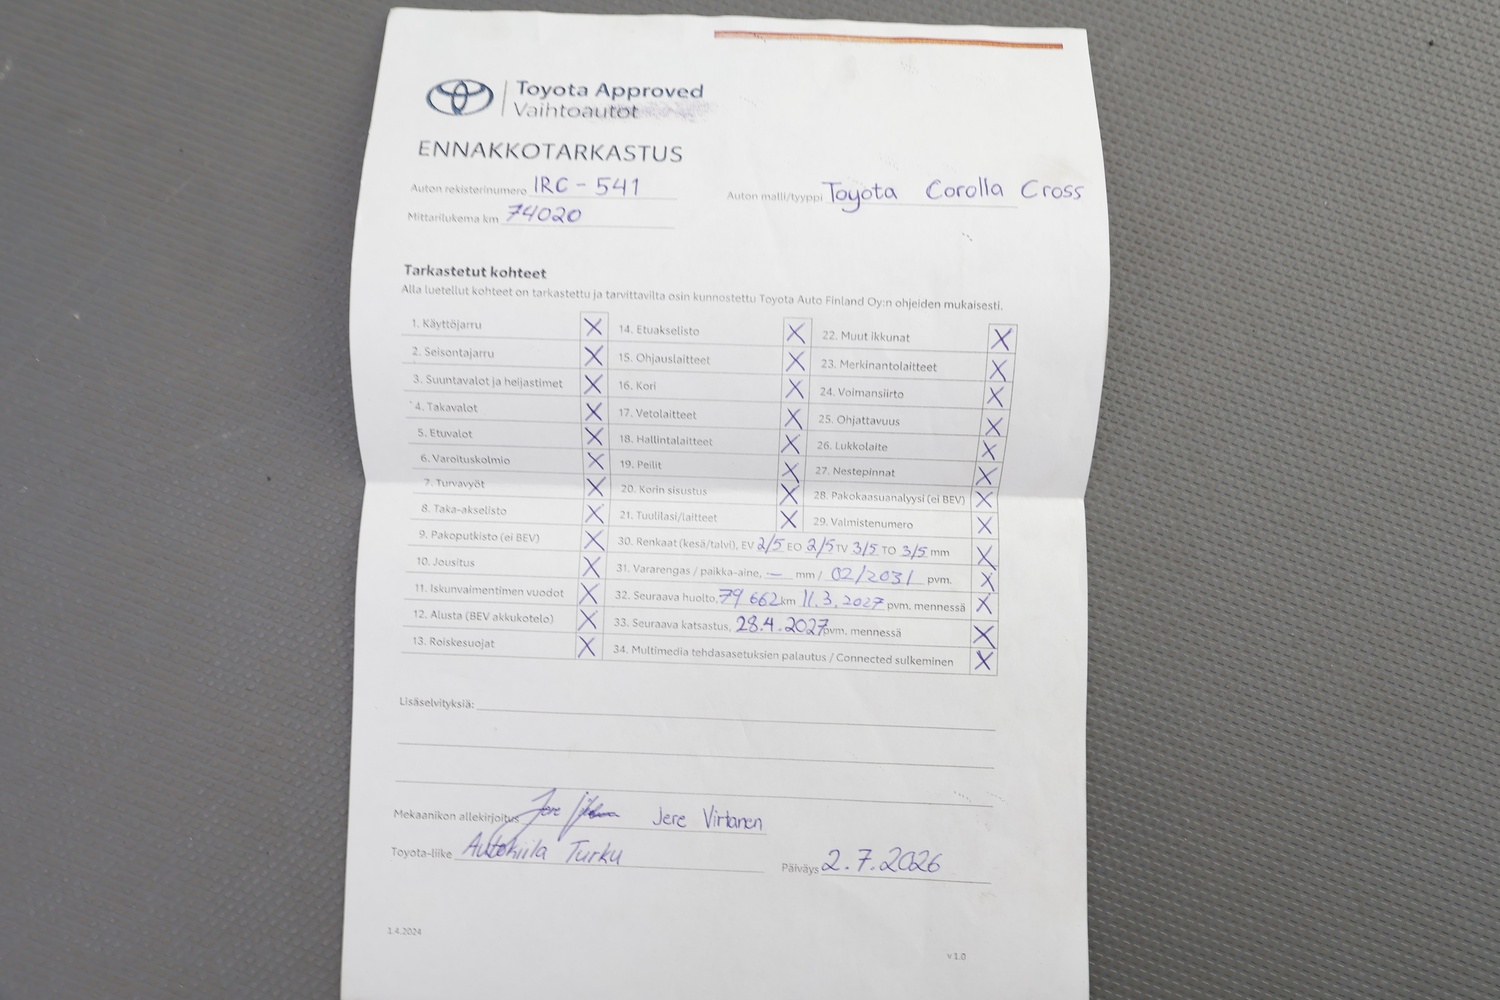 Toyota Approved
Vaihtoautot
ENNAKKOTARKASTUS
Auton rekisterinumero IRC - 541
Auton malli/tyyppi Toyota Corolla Cross
Mittarilukema km 74020
Tarkastetut kohteet
Alla luetellut kohteet on tarkastettu ja tarvittavilta osin kunnostettu Toyota Auto Finland Oy:n ohjeiden mukaisesti.
1. Käyttöjarru X
2. Seisontajarru X
3. Suuntavalot ja heijastimet X
4. Takavalot X
5. Etuvalot X
6. Varoituskolmio X
7. Turvavyöt X
8. Taka-akselisto X
9. Pakoputkisto (ei BEV) X
10. Jousitus X
11. Iskunvaimentimen vuodot X
12. Alusta (BEV akkukotelo) X
13. Roiskesuojat X
14. Etuakselisto X
15. Ohjauslaitteet X
16. Kori X
17. Vetolaitteet X
18. Hallintalaitteet X
19. Peilit X
20. Korin sisustus X
21. Tuulilasi/laitteet X
22. Muut ikkunat X
23. Merkinantolaitteet X
24. Voimansiirto X
25. Ohjattavuus X
26. Lukkolaite X
27. Nestepinnat X
28. Pakokaasuanalyysi (ei BEV) X
29. Valmistenumero X
30. Renkaat (kesä/talvi), EV 2/5 EO 2/5 TV 3/5 TO 3/5 mm X
31. Vararengas / paikka-aine, — mm / 02/2031 pvm. X
32. Seuraava huolto, 79 662 km 11.3.2027 pvm. mennessä X
33. Seuraava katsastus, 28.4.2027 pvm. mennessä X
34. Multimedia tehdasasetuksien palautus / Connected sulkeminen X
Lisäselvityksiä:
Mekaanikon allekirjoitus Jere Virtanen
Toyota-liike Autokiila Turku
Päiväys 2.7.2026
1.4.2024
v 1.0